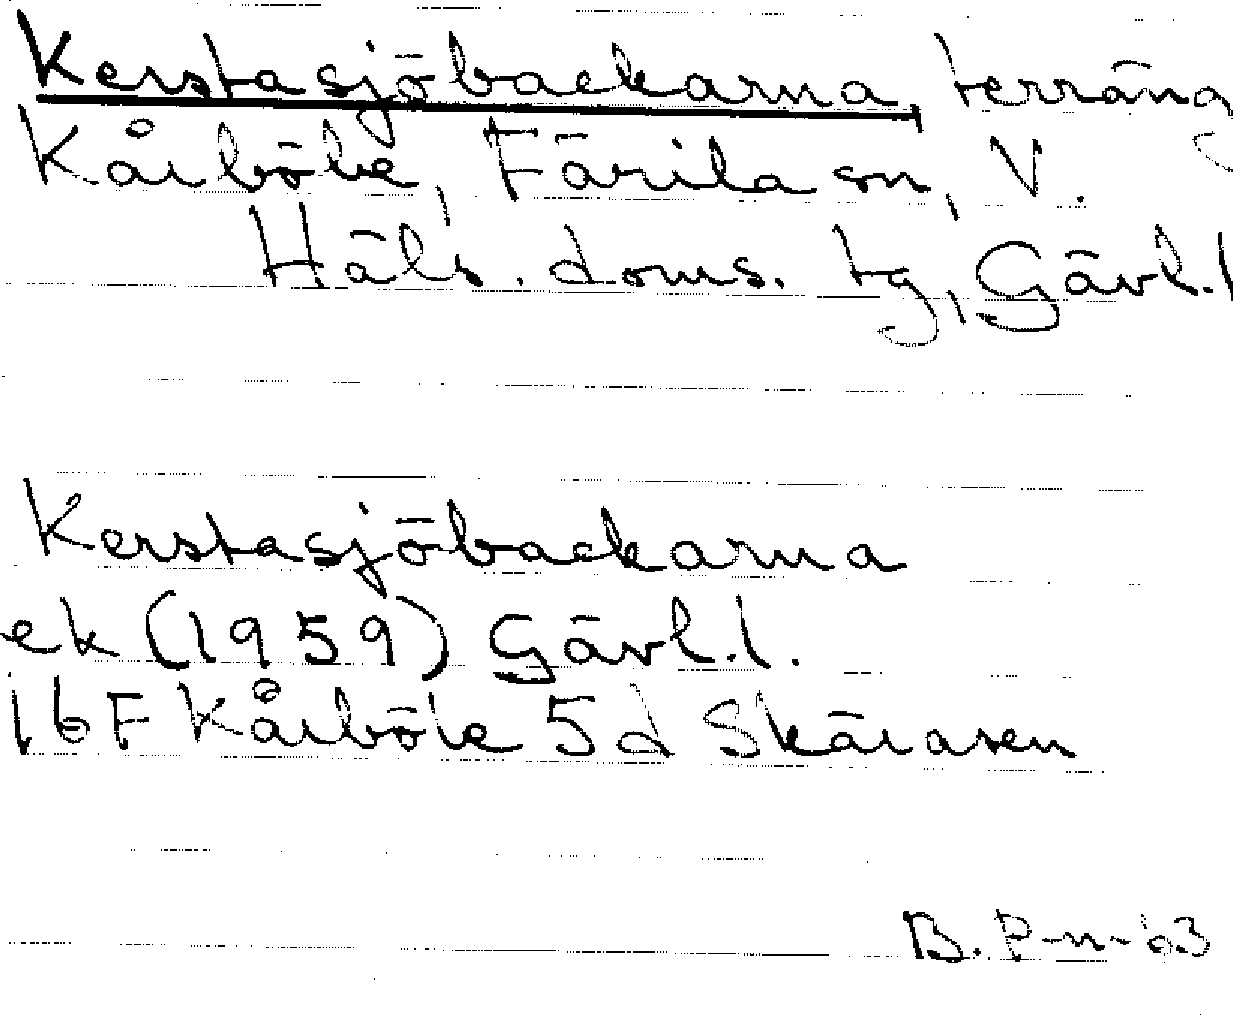 Kerstasjöbackarna, terräng
Kårböle, Färila sn, V.
Häls. doms. tg, Gävl.l
Kerstasjöbackarna
ek (1959) Gävl.l.
16F Kårböle 5d Skåråsen
B. P-n-63